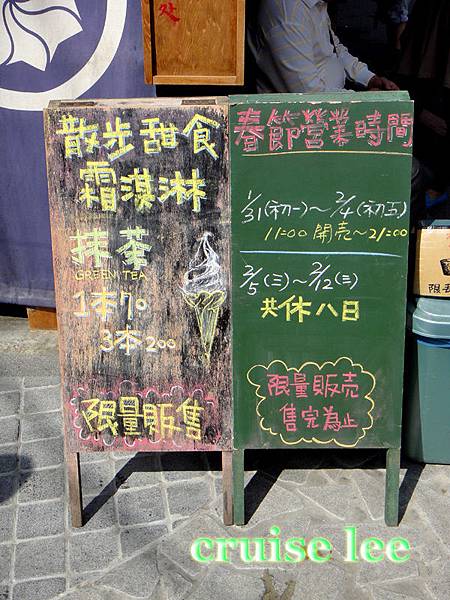 处
散步甜食
霜淇淋
抹茶
GREEN TEA
1本70
3本200
限量販售
春節營業時間
1/31(初一)～2/4(初五)
11:00 開売～21:00
2/5(三)～2/12(三)
共休八日
限量販売
售完為止
cruise lee